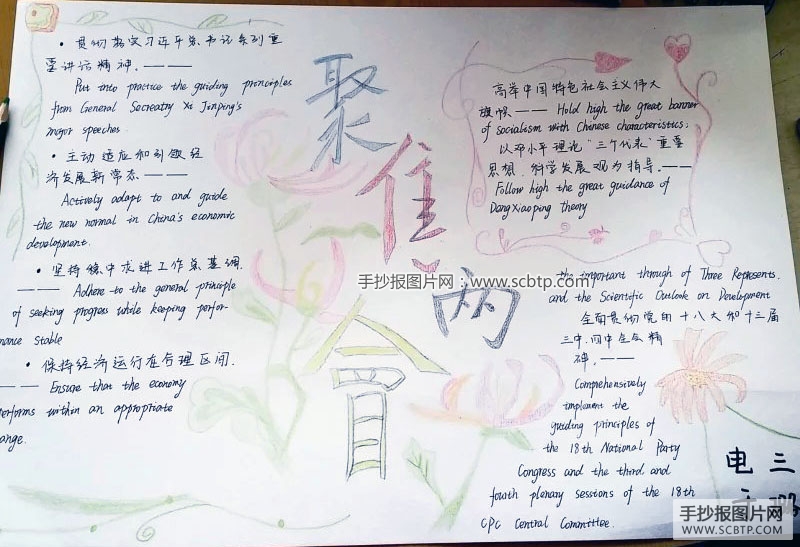 • 贯彻落实习近平总书记系列重
要讲话精神.———
Put into practice the guiding principles
from General Secreatry Xi Jinping's
major speeches.
• 主动适应和引领经
济发展新常态———
Actively adapt to and guide
the new normal in China's economic
development.
• 坚持稳中求进工作总基调.
——— Adhere to the general principle
of seeking progress while keeping perfor-
mance stable
• 保持经济运行在合理区间.
—— Ensure that the economy
erforms within an appropriate
ange.
聚
焦
两
會
高举中国特色社会主义伟大
旗帜——— Hold high the great banner
of socialism with Chinese characteristics;
以邓小平理论"三个代表"重要
思想、科学发展观为指导.———
Follow high the great guidance of
DengXiaoping theory
the important through of Three Represents.
and the Scientific Outlook on Development
全面贯彻党的十八大和十三届
三中,四中全会精
神.———
Comprehensively
implement the
guiding principles of
the 18th National Party
Congress and the third and
fourth plenary sessions of the 18th
CPC Central Committee.
电三
手抄报图片网：www.scbtp.com
手抄报图片网
WWW.SCBTP.COM